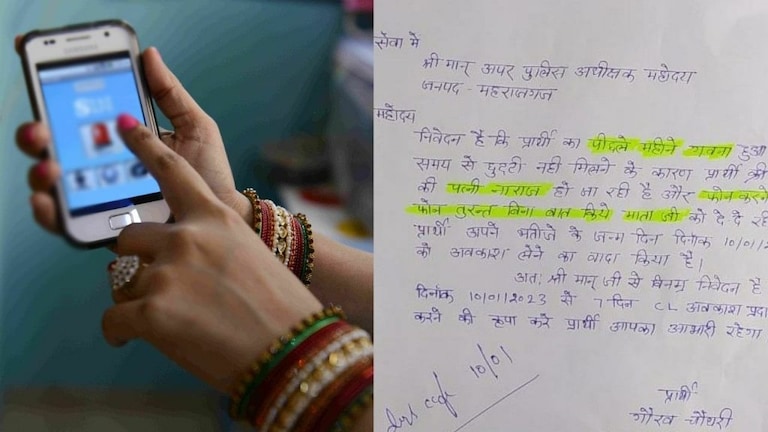 सेवा में
श्री मान् अपर पुलिस अधीक्षक महोदय
जनपद - महराजगंज
महोदय
निवेदन है कि प्रार्थी का पिछले महीने गवना हुआ
समय से छुट्टी नही मिलने के कारण प्रार्थी
की पत्नी नाराज हो जा रही है और फोन करने
फोन तुरन्त बिना बात किये माता जी को दे दे
प्रार्थी अपने भतीजे के जन्म दिन दिनांक 10/01/
को अवकाश लेने का वादा किया है।
अतः श्री मान् जी से विनम्र निवेदन है
दिनांक 10/01/2023 से 7 दिन CL अवकाश
करने की कृपा करे प्रार्थी आपका आभारी रहेगा
10/01
प्रार्थी
गौरव चौधरी